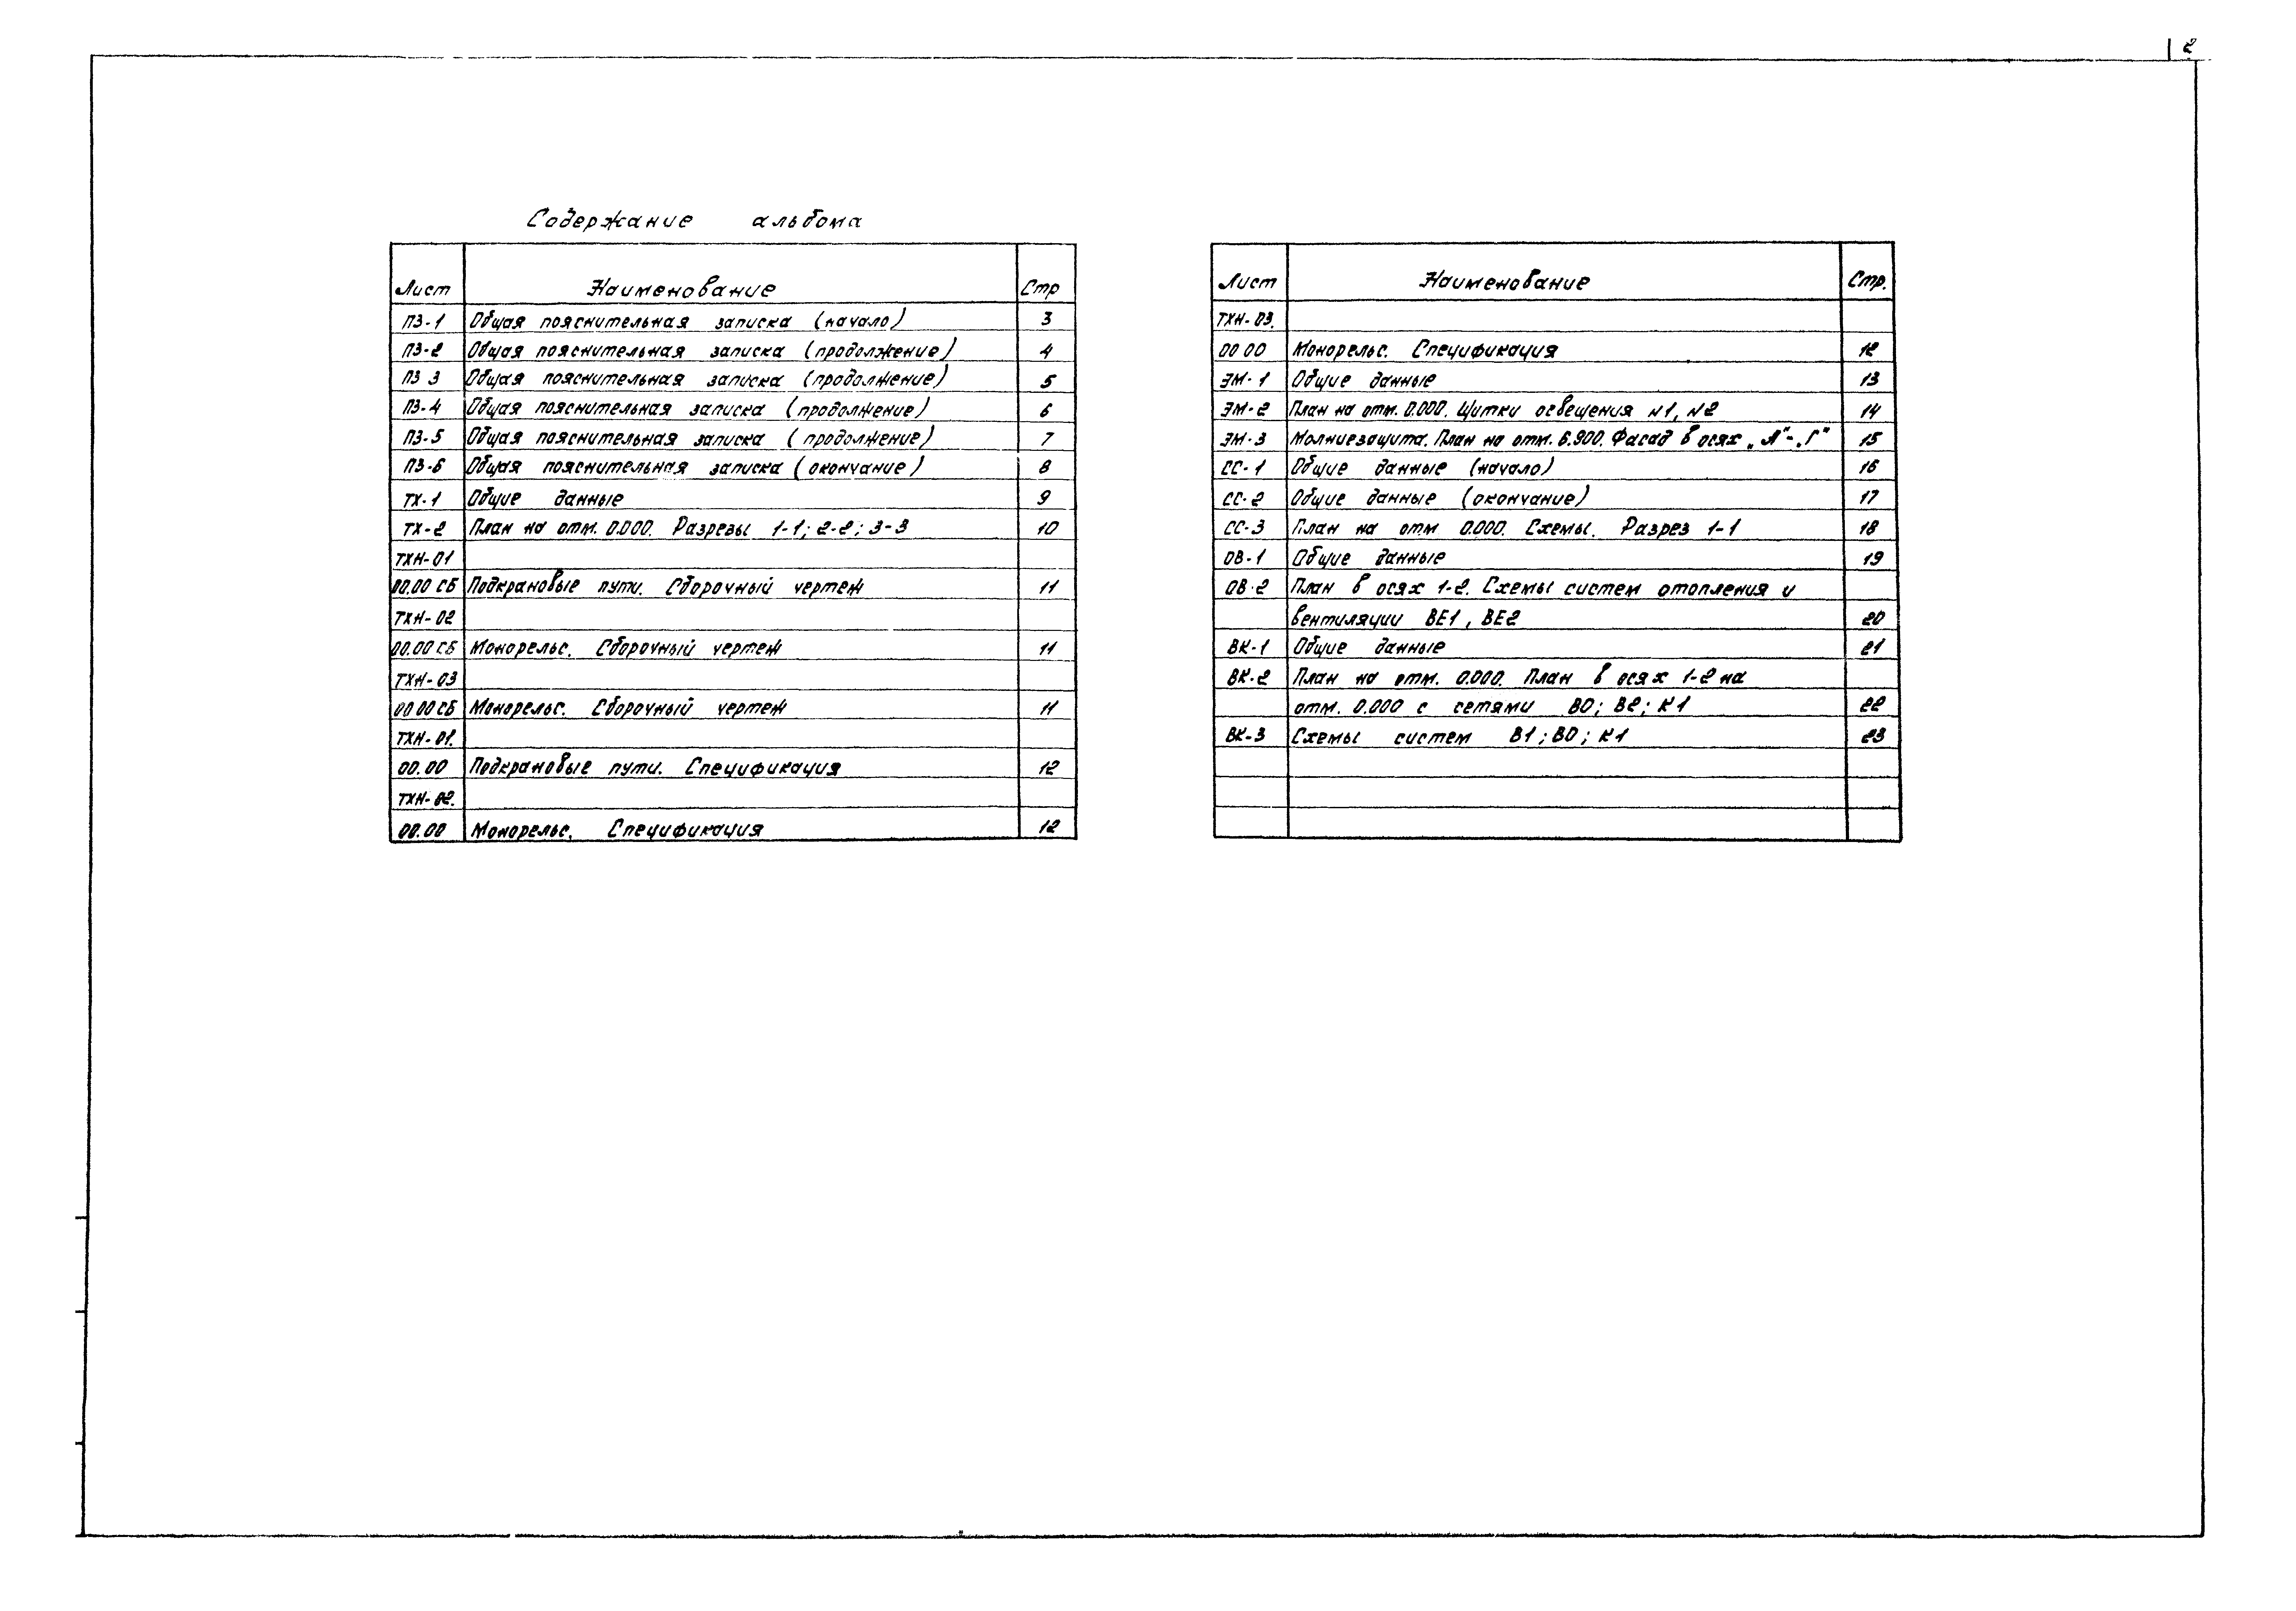 2
Содержание альбома
Лист Наименование Стр
ПЗ-1 Общая пояснительная записка (начало) 3
ПЗ-2 Общая пояснительная записка (продолжение) 4
ПЗ 3 Общая пояснительная записка (продолжение) 5
ПЗ-4 Общая пояснительная записка (продолжение) 6
ПЗ-5 Общая пояснительная записка (продолжение) 7
ПЗ-6 Общая пояснительная записка (окончание) 8
ТХ-1 Общие данные 9
ТХ-2 План на отм. 0.000. Разрезы 1-1; 2-2; 3-3 10
ТХН-01
00.00 СБ Подкрановые пути. Сборочный чертеж 11
ТХН-02
00.00 СБ Монорельс. Сборочный чертеж 11
ТХН-03
00 00 СБ Монорельс. Сборочный чертеж 11
ТХН-01.
00.00 Подкрановые пути. Спецификация 12
ТХН-02.
00.00 Монорельс. Спецификация 12
Лист Наименование Стр.
ТХН-03.
00 00 Монорельс. Спецификация 12
ЭМ-1 Общие данные 13
ЭМ-2 План на отм. 0.000. Щитки освещения N1, N2 14
ЭМ-3 Молниезащита. План на отм. 6.900. Фасад в осях „А"-„Г" 15
СС-1 Общие данные (начало) 16
СС-2 Общие данные (окончание) 17
СС-3 План на отм 0.000. Схемы. Разрез 1-1 18
ОВ-1 Общие данные 19
ОВ-2 План в осях 1-2. Схемы систем отопления и
вентиляции ВЕ1, ВЕ2 20
ВК-1 Общие данные 21
ВК-2 План на отм. 0.000. План в осях 1-2 на
отм. 0.000 с сетями В0; В2; К1 22
ВК-3 Схемы систем В1; В0; К1 23